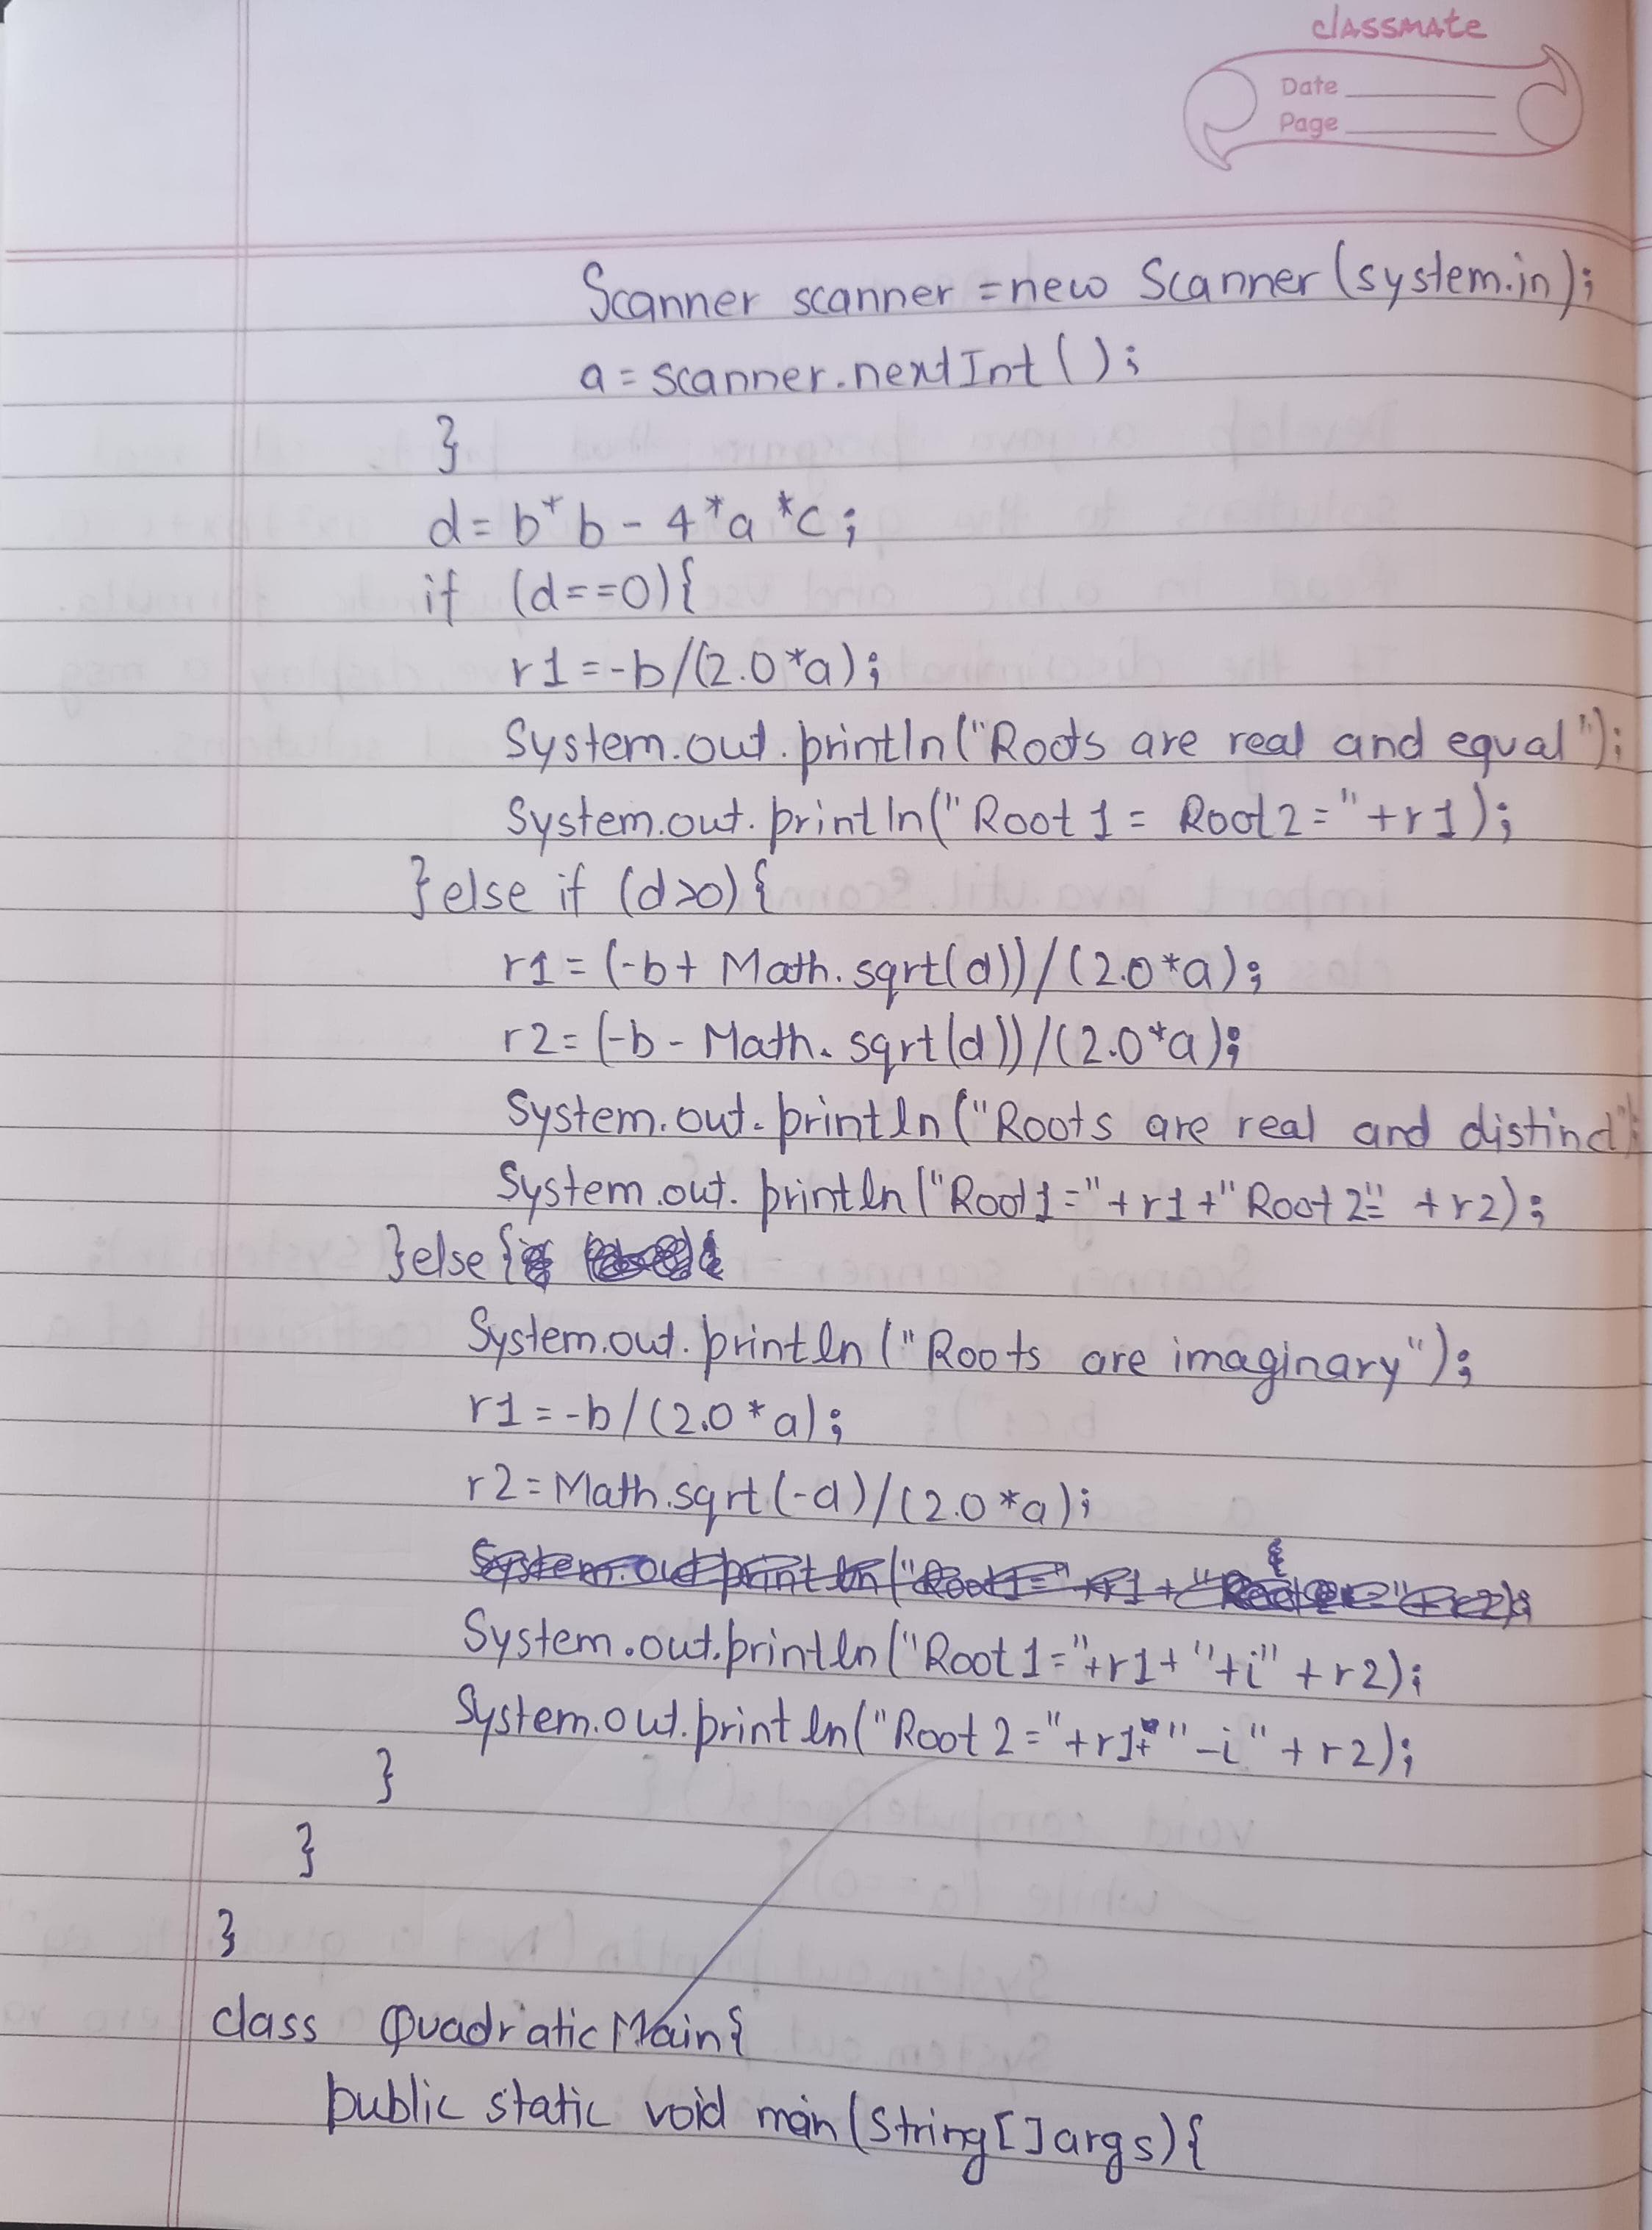 classmate
Date
Page
Scanner scanner =new Scanner(system.in);
a = scanner.nextInt();
}
d= b*b - 4*a*c;
if (d==0){
r1=-b/(2.0*a);
System.out.println("Roots are real and equal");
System.out.println("Root 1 = Root 2 ="+r1);
}else if (d>0){
r1= (-b+ Math.sqrt(d))/(2.0*a);
r2= (-b - Math.sqrt(d))/(2.0*a);
System.out.println("Roots are real and distinct");
System.out.println("Root1="+r1+"Root 2=" +r2);
}else{
System.out.println("Roots are imaginary");
r1 =-b/(2.0*a);
r2= Math.sqrt(-d)/(2.0*a);
System.out.println("Root 1="+r1+"+i" +r2);
System.out.println("Root 2="+r1+"-i"+r2);
}
}
}
class QuadraticMain{
public static void main(String[]args){